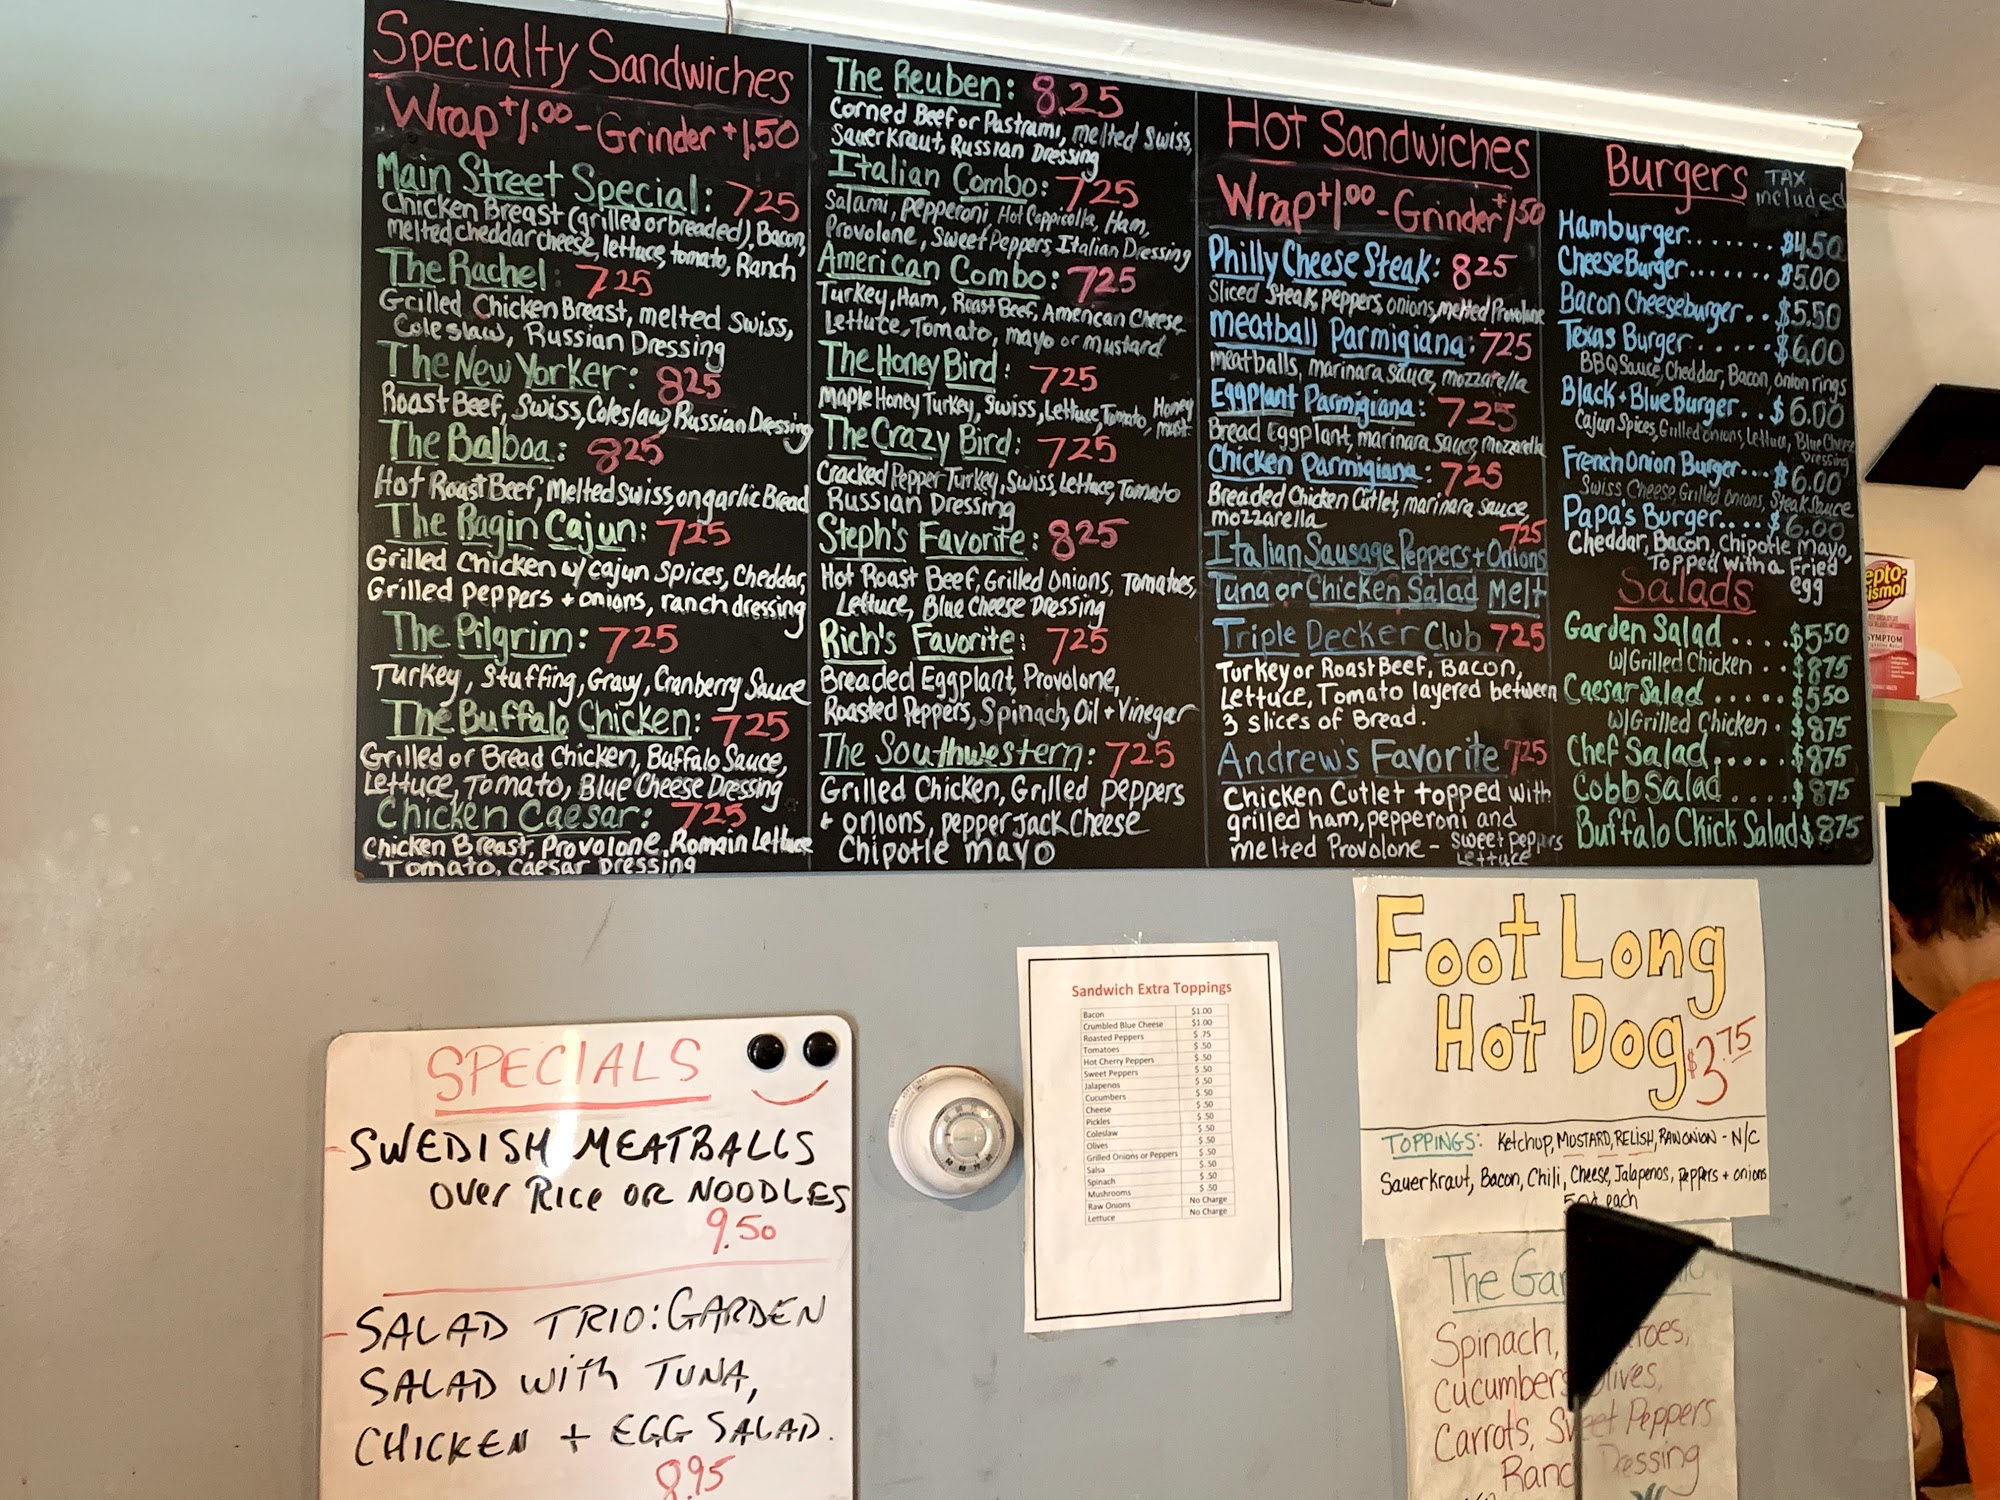 Specialty Sandwiches
Wrap +1.00 - Grinder +1.50
Main Street Special: 725
Chicken Breast (grilled or breaded), Bacon,
melted cheddar cheese, lettuce, tomato, Ranch
The Rachel: 725
Grilled Chicken Breast, melted Swiss,
Coleslaw, Russian Dressing
The New Yorker: 825
Roast Beef, Swiss, Coleslaw, Russian Dressing
The Balboa: 825
Hot Roast Beef, Melted Swiss, on garlic Bread
The Ragin Cajun: 725
Grilled Chicken w/ cajun spices, Cheddar,
Grilled peppers + onions, ranch dressing
The Pilgrim: 725
Turkey, Stuffing, Gravy, Cranberry Sauce
The Buffalo Chicken: 725
Grilled or Bread Chicken, Buffalo Sauce,
Lettuce, Tomato, Blue Cheese Dressing
Chicken Caesar: 725
Chicken Breast, Provolone, Romain Lettuce
Tomato, Caesar Dressing
The Reuben: 8.25
Corned Beef or Pastrami, melted Swiss,
Sauerkraut, Russian Dressing
Italian Combo: 725
Salami, pepperoni, Hot Coppicolla, Ham,
Provolone, Sweet Peppers, Italian Dressing
American Combo: 725
Turkey, Ham, Roast Beef, American Cheese
Lettuce, Tomato, mayo or mustard
The Honey Bird: 725
Maple Honey Turkey, Swiss, Lettuce, Tomato, Honey
must.
The Crazy Bird: 725
Cracked Pepper Turkey, Swiss, Lettuce, Tomato
Russian Dressing
Steph's Favorite: 825
Hot Roast Beef, Grilled Onions, Tomatoes,
Lettuce, Blue Cheese Dressing
Rich's Favorite: 725
Breaded Eggplant, Provolone,
Roasted Peppers, Spinach, Oil + Vinegar
The Southwestern: 725
Grilled Chicken, Grilled peppers
+ onions, pepper jack cheese
Chipotle mayo
Hot Sandwiches
Wrap +1.00 - Grinder +1.50
Philly Cheese Steak: 825
Sliced Steak, peppers, onions, melted Provolone
Meatball Parmigiana: 725
meatballs, marinara sauce, mozzarella
Eggplant Parmigiana: 725
Bread Eggplant, marinara sauce, mozzarella
Chicken Parmigiana: 725
Breaded Chicken Cutlet, marinara sauce,
mozzarella
725
Italian Sausage Peppers + Onions
Tuna or Chicken Salad Melt
Triple Decker Club 725
Turkey or Roast Beef, Bacon,
Lettuce, Tomato layered between
3 slices of Bread.
Andrew's Favorite 725
Chicken Cutlet topped with
grilled ham, pepperoni and
melted Provolone - Sweet Peppers
Lettuce
Burgers TAX included
Hamburger....... $4.50
CheeseBurger....... $5.00
Bacon Cheeseburger.. $5.50
Texas Burger...... $6.00
BBQ Sauce, Cheddar, Bacon, onion rings
Black + Blue Burger.. $6.00
Cajun Spices, Grilled onions, Lettuce, Blue Cheese
Dressing
French Onion Burger... $6.00
Swiss Cheese, Grilled Onions, Steak Sauce
Papa's Burger.... $6.00
Cheddar, Bacon, Chipotle mayo,
Topped with a Fried
egg
Salads
Garden Salad .... $550
w/Grilled Chicken .. $875
Caesar Salad ..... $550
w/Grilled Chicken . $875
Chef Salad..... $875
Cobb Salad .... $875
Buffalo Chick Salad $875
SPECIALS
-SWEDISH MEATBALLS
over Rice or NOODLES
9.50
-SALAD TRIO: GARDEN
SALAD with TUNA,
CHICKEN + EGG SALAD.
8.95
Sandwich Extra Toppings
Bacon $1.00
Crumbled Blue Cheese $1.00
Roasted Peppers $ .75
Tomatoes $ .50
Hot Cherry Peppers $ .50
Sweet Peppers $ .50
Jalapenos $ .50
Cucumbers $ .50
Cheese $ .50
Pickles $ .50
Coleslaw $ .50
Olives $ .50
Grilled Onions or Peppers $ .50
Salsa $ .50
Spinach $ .50
Mushrooms $ .50
Raw Onions No Charge
Lettuce No Charge
Foot Long
Hot Dog $3.75
TOPPINGS: Ketchup, MUSTARD, RELISH, RAW ONION - N/C
Sauerkraut, Bacon, Chili, Cheese, Jalapenos, peppers + onions
50¢ each
The
Spinach,
Cucumbers
Carrots, Sweet Peppers
Dressing
SYMPTOM